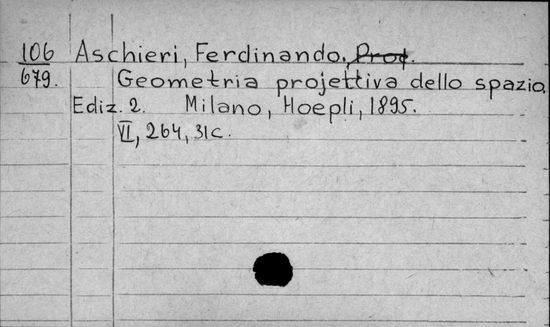 106 Aschieri, Ferdinando, Prof.
679. Geometria projettiva dello spazio.
Ediz. 2. Milano, Hoepli, 1895.
VI, 264, 31c.